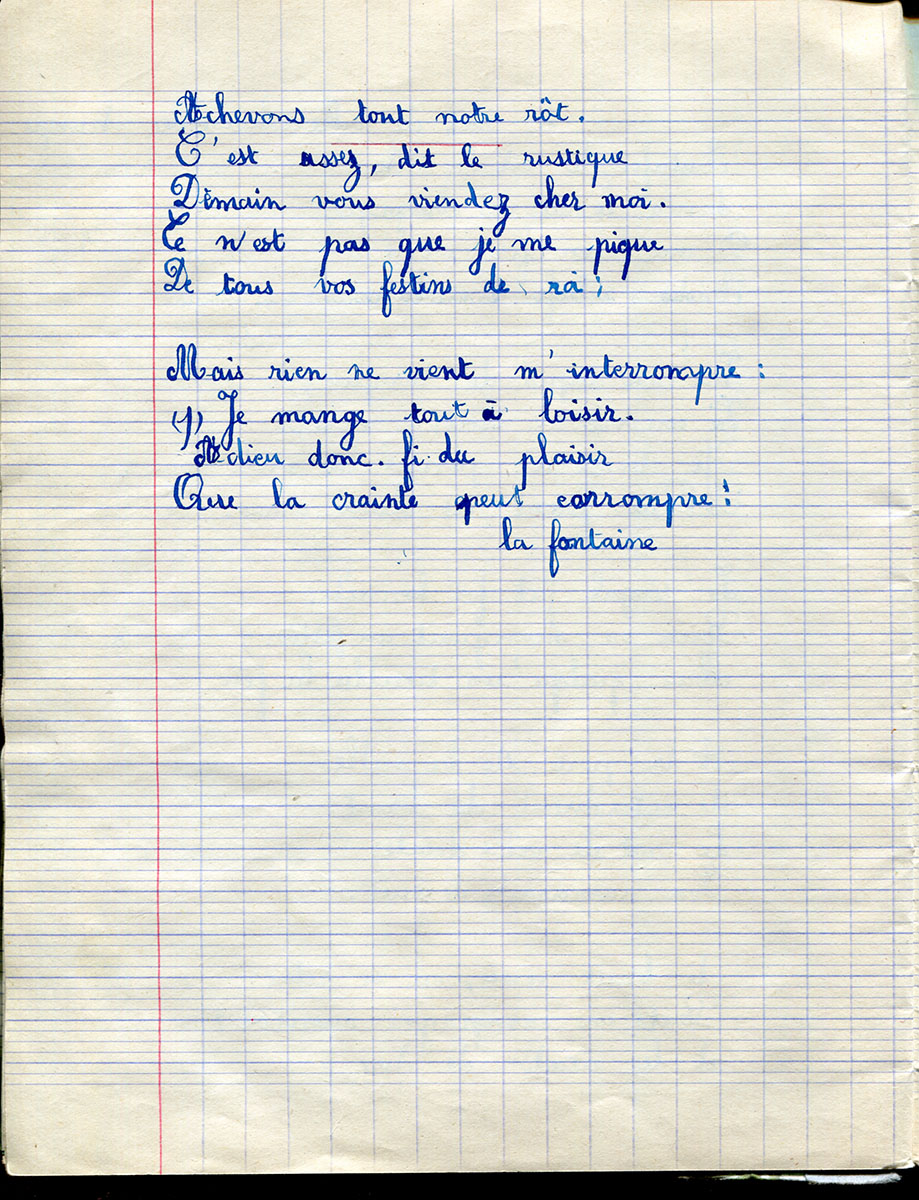 Achevons tout notre rôt.
C'est assez, dit le rustique
Dèmain vous viendez cher moi.
Ce n'est pas que je me pique
De tous vos festins de roi ;
Mais rien ne vient m'interrompre :
(1) Je mange tout à loisir.
Adieu donc. fi du plaisir
Que la crainte peut corrompre !
la fontaine